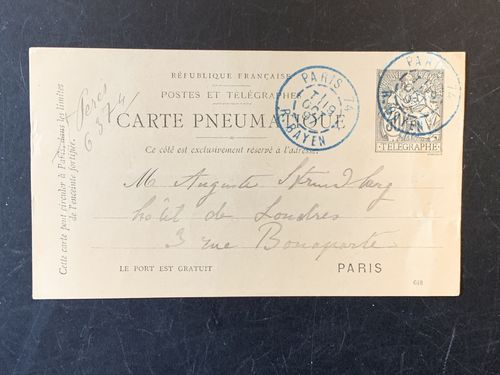 RÉPUBLIQUE FRANÇAISE
POSTES ET TÉLÉGRAPHES
CARTE PNEUMATIQUE
Ce côté est exclusivement réservé à l'adresse.
M. Auguste Strindberg
hôtel de Londres
3 rue Bonaparte
LE PORT EST GRATUIT
PARIS
Cette carte peut circuler à Paris, dans les limites
de l'enceinte fortifiée.
PARIS 74
R. BAYEN
PARIS 74
R. BAYEN
TÉLÉGRAPHE